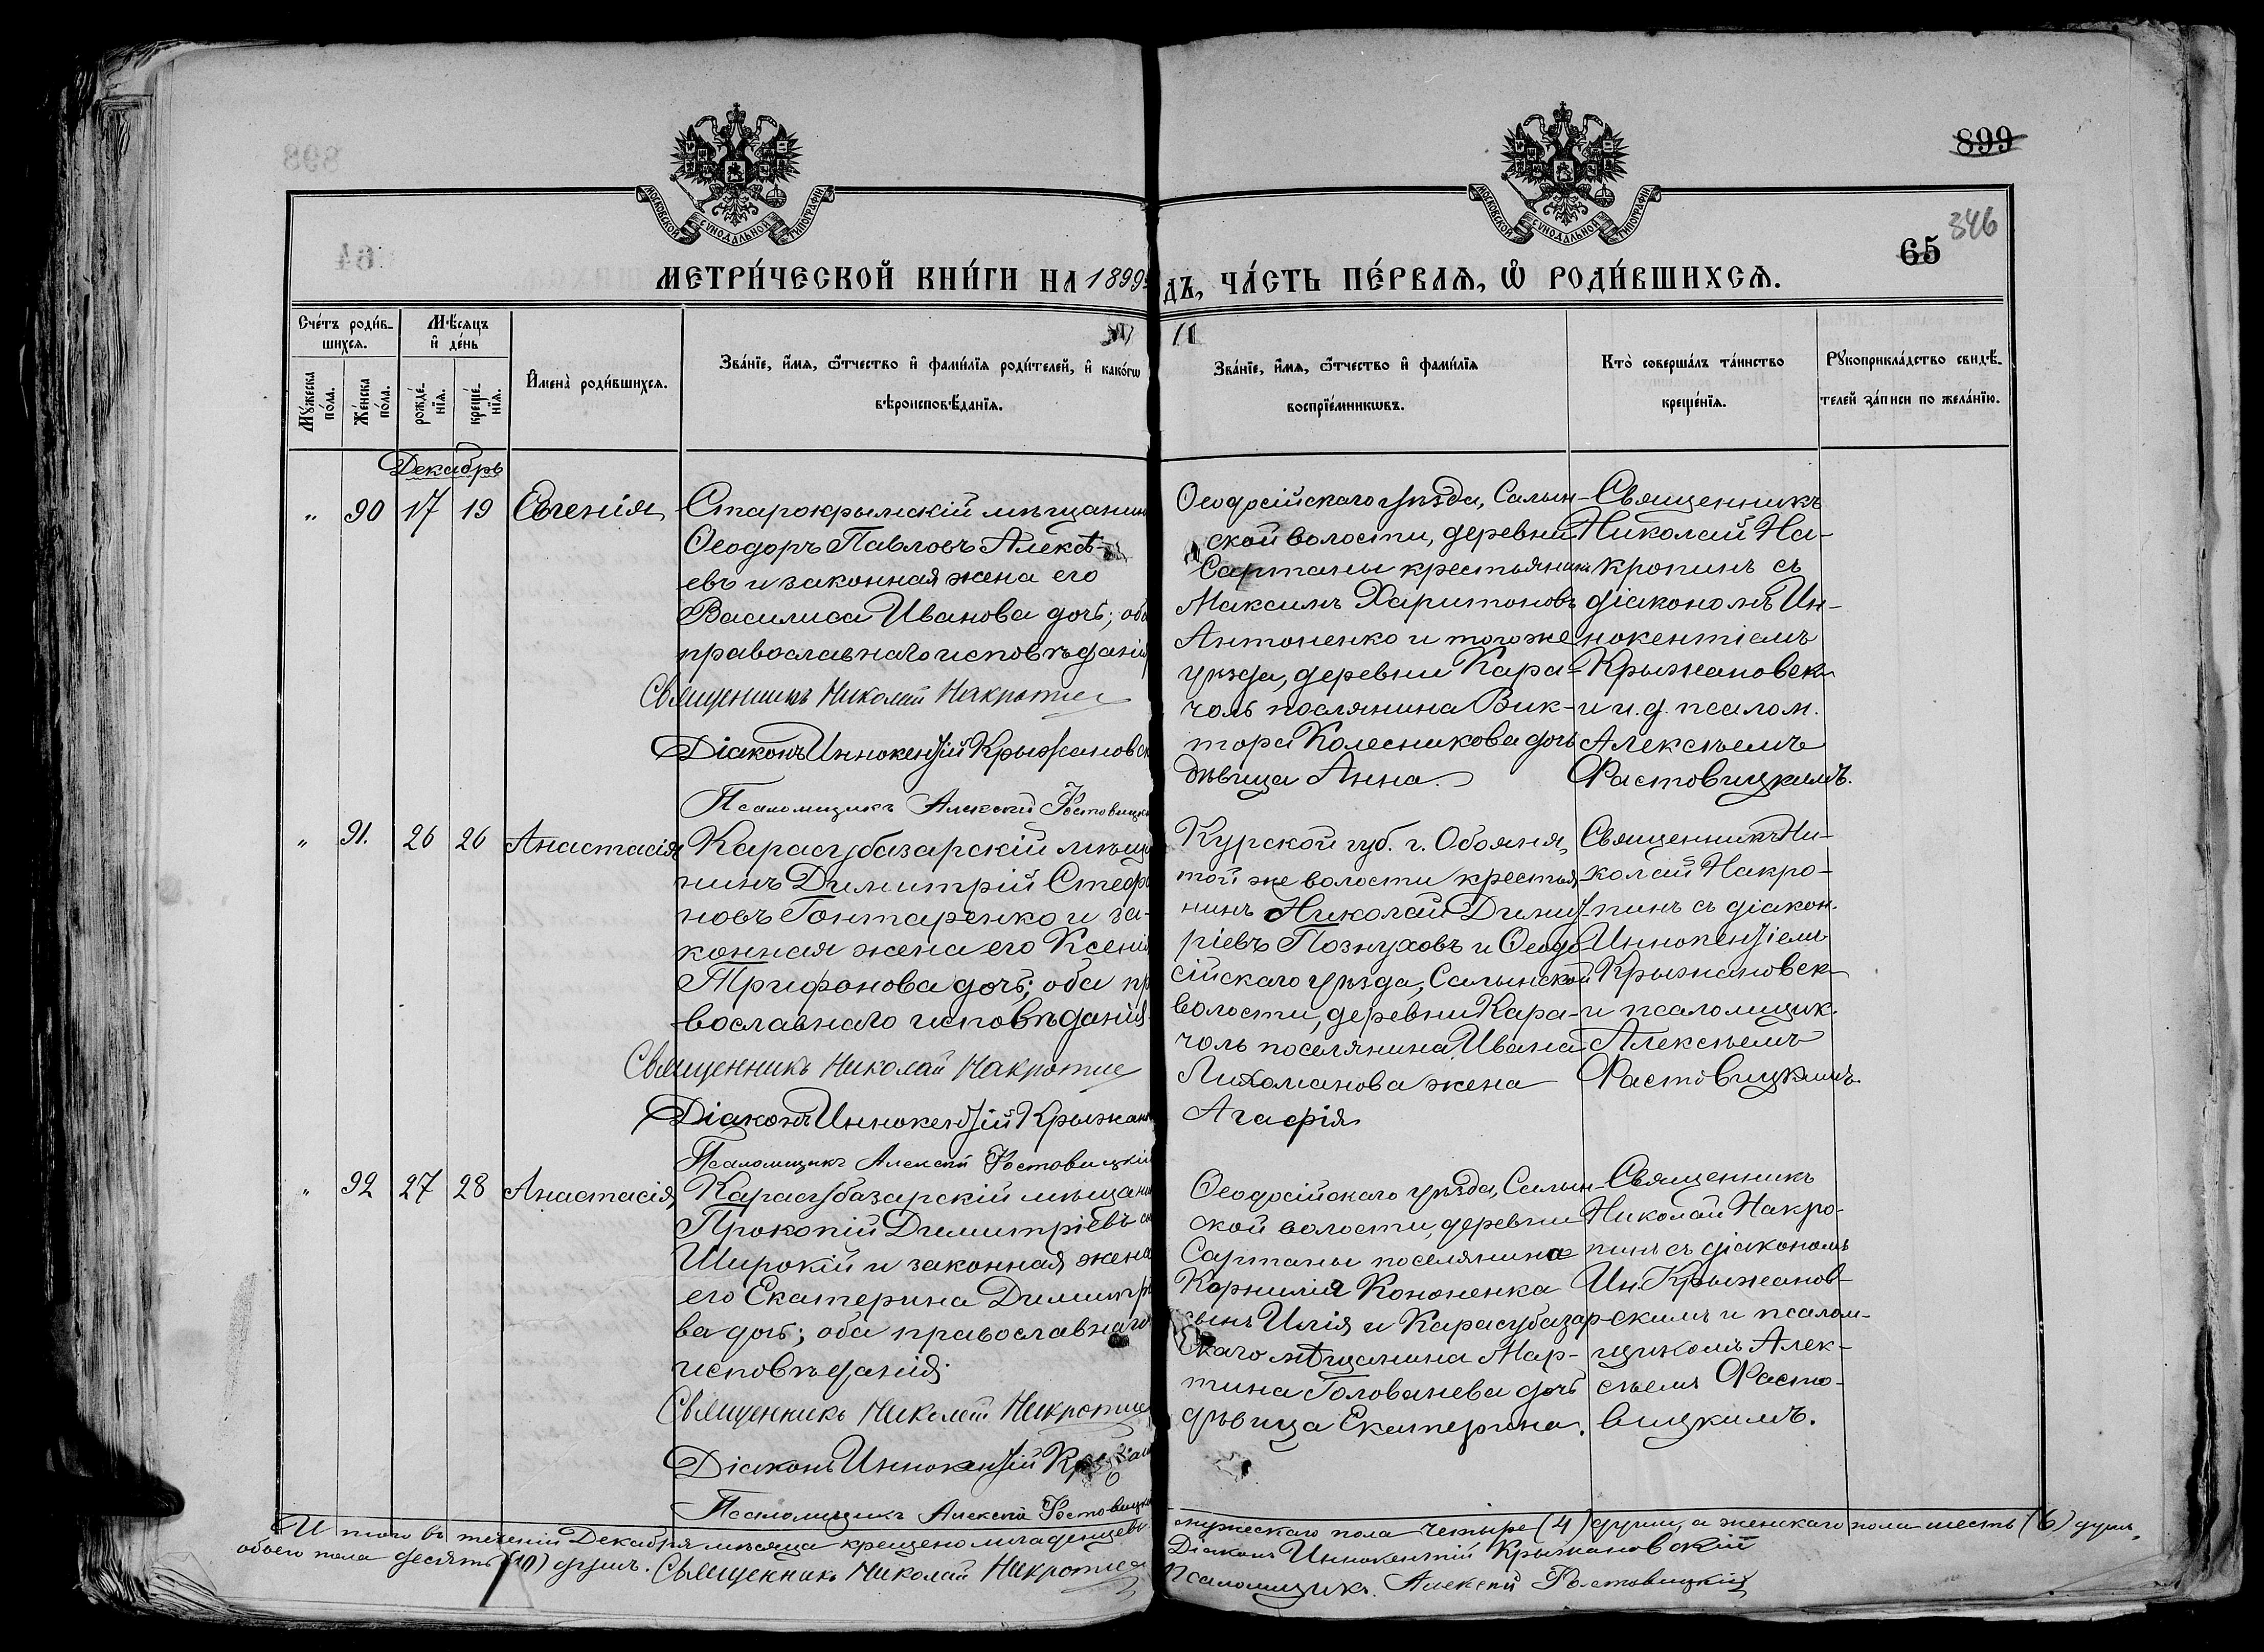 899
346
65
МОСКОВСКОЙ СѴНОДАЛЬНОЙ ТИПОГРАФИИ
МОСКОВСКОЙ СѴНОДАЛЬНОЙ ТИПОГРАФИИ
МЕТРИ́ЧЕСКОЙ КНИ́ГИ НА 1899
ДЪ, ЧА́СТЬ ПЕ́РВАѦ, Ѽ РОДИ́ВШИХСѦ.
Сче́тъ роди́в-
шихсѧ.
Мѣ́сѧцъ
и҆ де́нь
Мꙋ́жеска
по́ла.
Же́нска
по́ла.
рожде́-
нїѧ.
креще́-
нїѧ.
И҆мена̀ роди́вшихсѧ.
Зва́нїе, и҆́мѧ, ѻ҆́тчество и҆ фами́лїѧ роди́телей, и҆ како́гѡ
вѣроисповѣ́данїѧ.
Зва́нїе, и҆́мѧ, ѻ҆́тчество и҆ фами́лїѧ
воспрїе́мникѡвъ.
Кто̀ соверша́лъ та́инство
креще́нїѧ.
Рꙋкоприкла́дство свидѣ́-
телей за́писи по жела́нїю.
Декабрь
„ 90 17 19 Евгенія
Старокрымскій мѣщанинъ
Ѳеодоръ Павловъ Алексѣ-
евъ и законная жена его
Василиса Иванова дочь; оба
православнаго исповѣданія
Священникъ Николай Накропин
Діаконъ Иннокентій Крыжановск
Псаломщикъ Алексѣй Фастовицкі
Ѳеодосійскаго уѣзда, Салын-
ской волости, деревни
Сартаны крестьянинъ
Максимъ Харитоновъ
Антоненко и того же
уѣзда, деревни Кара-
чоль поселянина Вик-
тора Колесникова дочь
дѣвица Анна.
Священникъ
Николай На-
кропинъ съ
діакономъ Ин-
нокентіемъ
Крыжановск.
и и.д. псалом.
Алексѣемъ
Фастовицкимъ.
„ 91. 26 26 Анастасія
Карасубазарскій мѣща
нинъ Димитрій Стефа
новъ Гонтаренко и за-
конная жена его Ксенія
Трифонова дочь; оба пр
вославнаго исповѣданія.
Священникъ Николай Накропин
Діаконъ Иннокентій Крыжано
Псаломщикъ Алексѣй Фастовицкій
Курской губ. г. Обояня,
той же волости крестья-
нинъ Николай Димит-
ріевъ Познуховъ и Ѳеодо
сійскаго уѣзда, Салынской
волости, деревни Кара-
чоль поселянина Ивана
Лихоманова жена
Агафія
Священникъ Ни-
колай Накро-
пинъ съ діакон.
Иннокентіемъ
Крыжановск.
и псаломщик.
Алексѣемъ
Фастовицкимъ.
„ 92 27 28 Анастасія
Карасубазарскій мѣщанин
Прокопій Димитріевъ
Широкій и законная жена
его Екатерина Димитрі
ва дочь; оба православнаго
исповѣданія.
Священникъ Николай Накропин
Діаконъ Иннокентій
Псаломщикъ Алексѣй Фастовицкі
Ѳеодосійскаго уѣзда, Салын-
ской волости, деревни
Сартаны поселянина
Корнилія Кононенка
сынъ Илія и Карасубазар-
скаго мѣщанина Мар-
тина Голованева дочь
дѣвица Екатерина.
Священникъ
Николай Накро-
пинъ съ діакономъ
Ин. Крыжанов-
скимъ и псалом-
щикомъ Алек-
сѣемъ Фасто-
вицкимъ.
Итого въ теченіи Декабря мѣсяца крещено младенцевъ
мужескаго пола четыре (4) души, а женскаго пола шесть (6) душъ,
обоего пола десять (10) душъ. Священникъ Николай Накропин
Діаконъ Иннокентій Крыжановскій
Псаломщикъ Алексѣй Фастовицкій